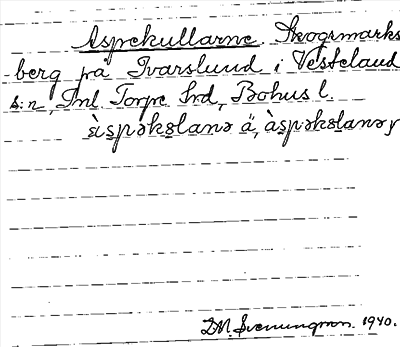 Aspekullarne. Skogsmarks
berg på Ivarslund i Vesteland
s:n, Inl. Torpe hd, Bohus l.
àspəkslanə ä, àspəkslanəy
D.M. Svenungson. 1940.